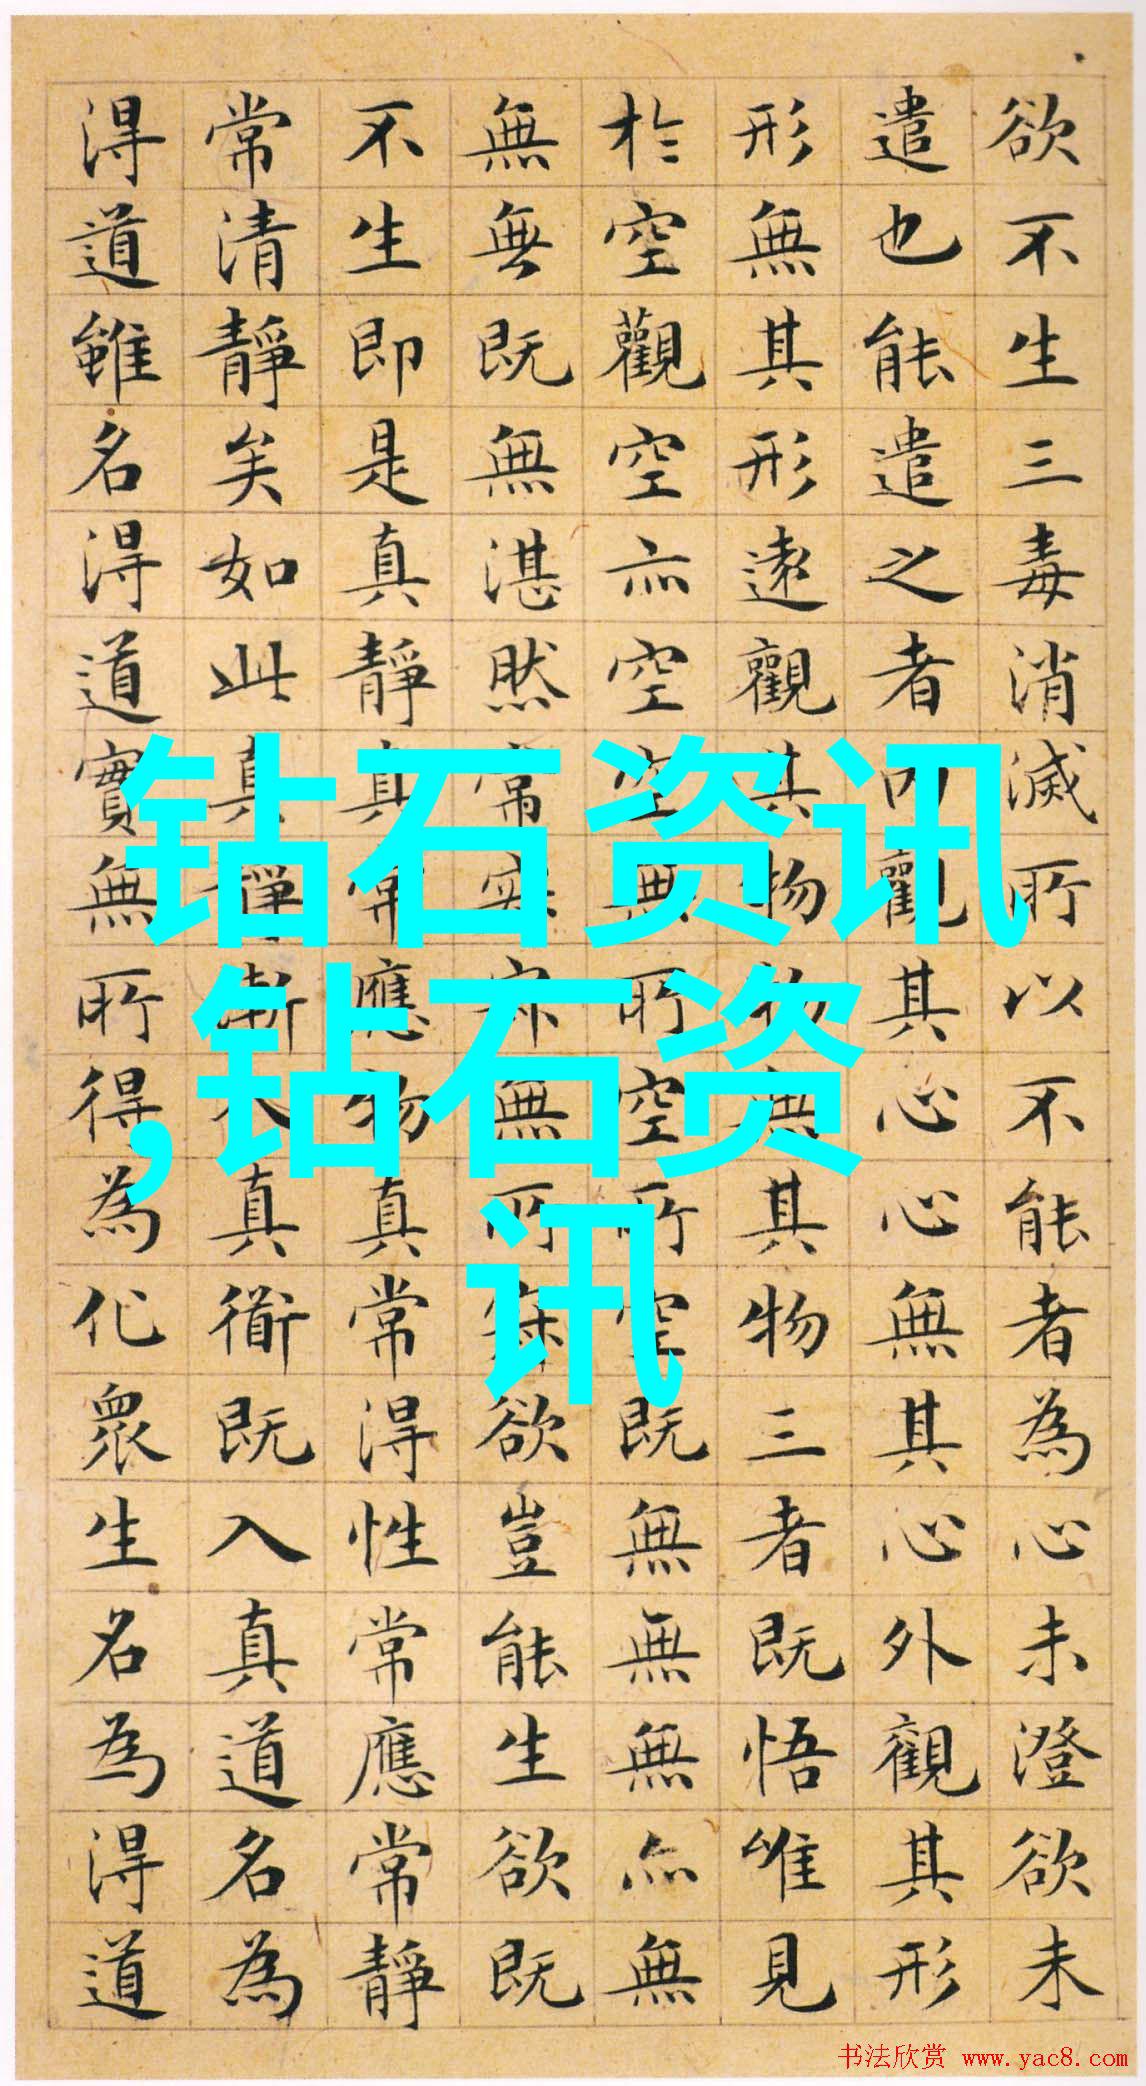 欲不生三毒消滅所以不能者為心未澄欲未
遣也能遣之者内觀其心心無其心外觀其形
形無其形遠觀其物物無其物三者既悟唯見
於空觀空亦空空無所空所空既無無無亦無
無無既無湛然常寂寂無所寂欲豈能生欲既
不生即是真靜真常應物真常得性常應常靜
常清靜矣如此真靜漸入真衜既入真道名為
得道雖名得道實無所得為化眾生名為得道
钻石资讯
,钻石资
讯
书法欣赏 www.yac8.com